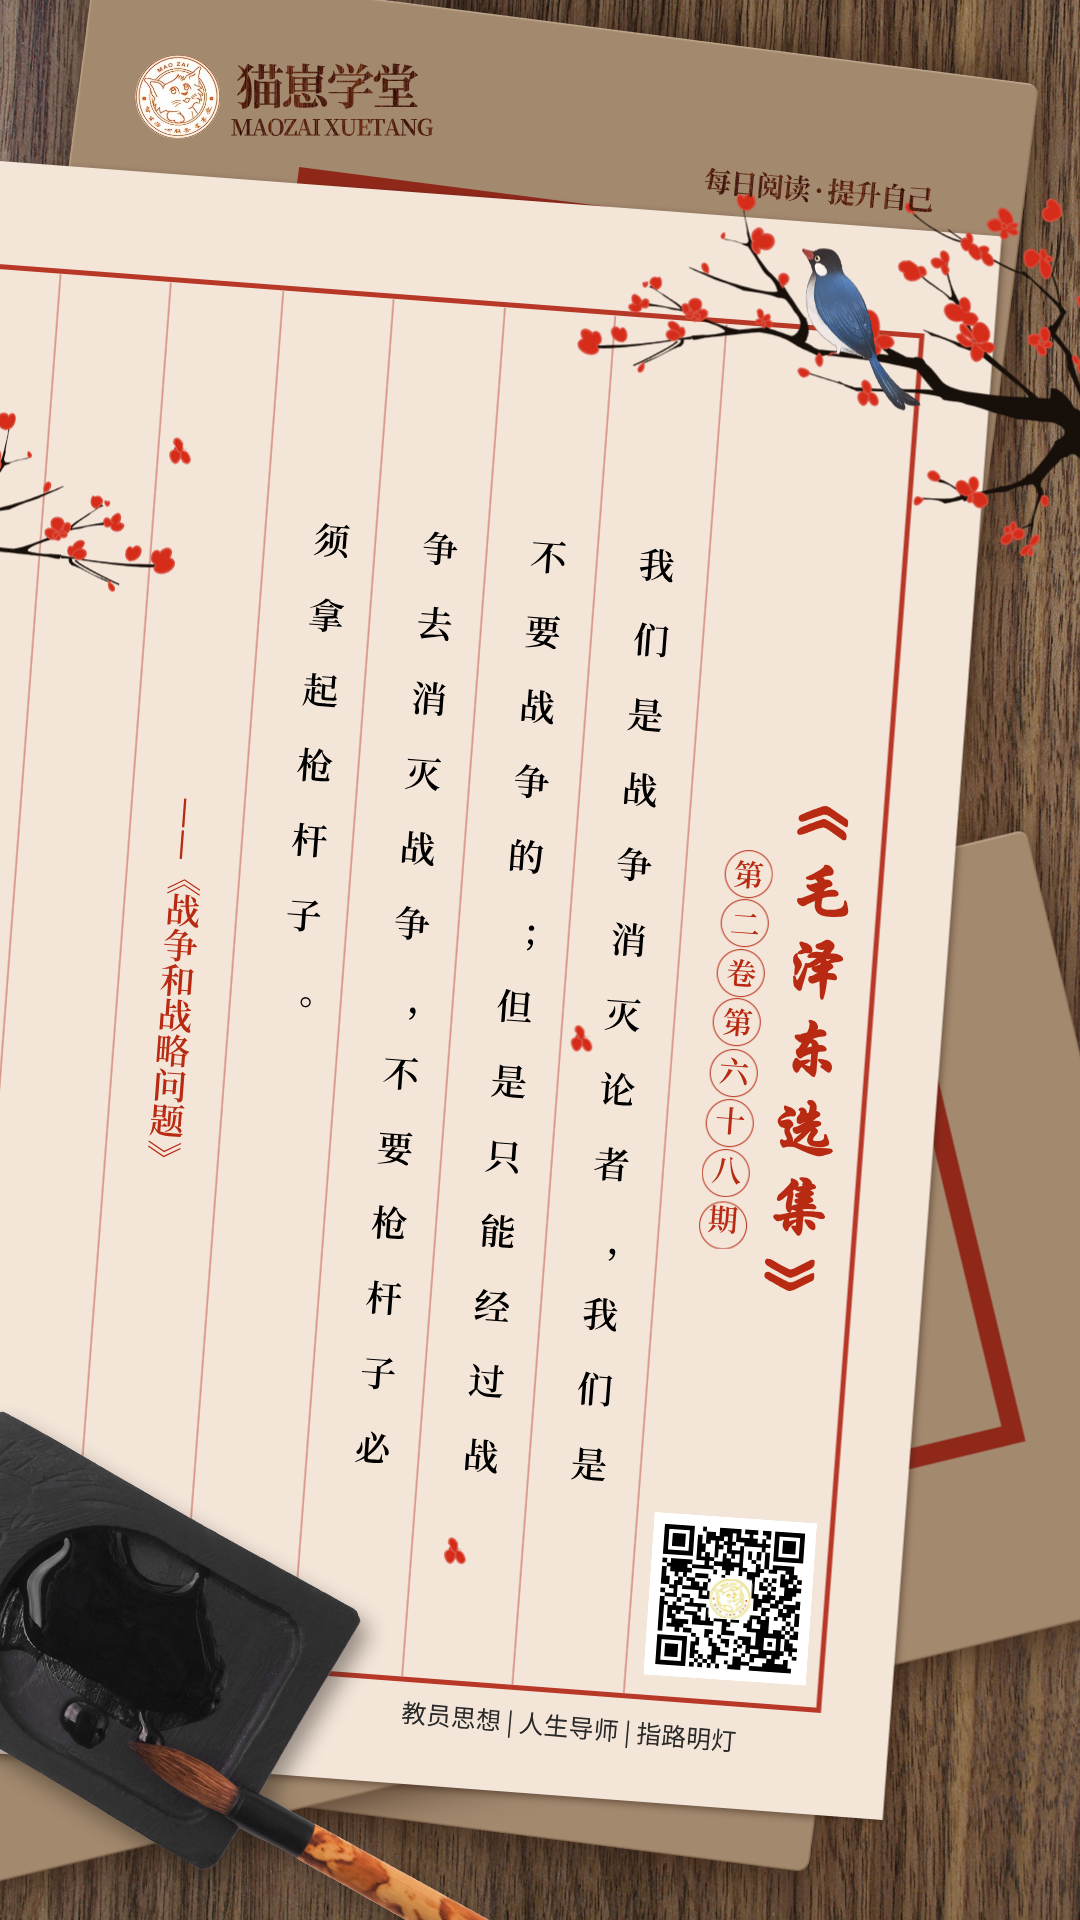 猫崽学堂
MAOZAI XUETANG
MAO ZAI
每日阅读·提升自己
《毛泽东选集》
第二卷第六十八期
我们是战争消灭论者，我们是
不要战争的；但是只能经过战
争去消灭战争，不要枪杆子必
须拿起枪杆子。
——《战争和战略问题》
教员思想 | 人生导师 | 指路明灯